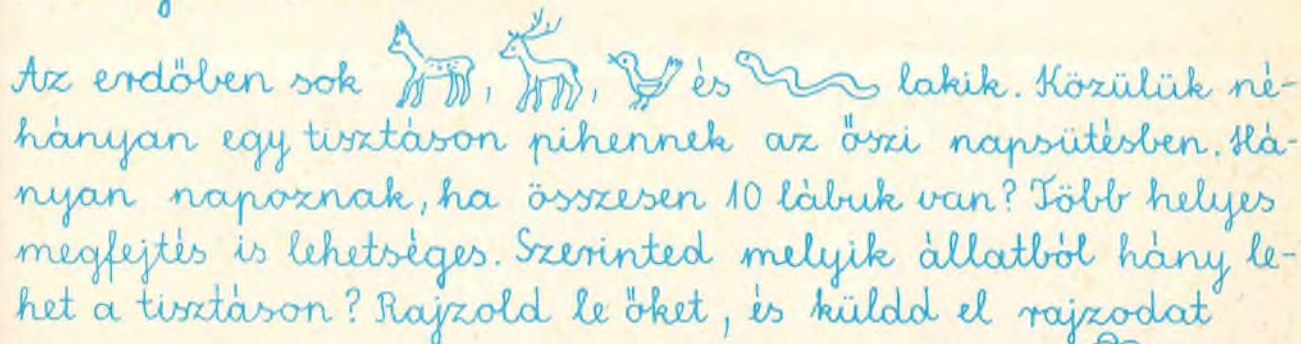 Az erdőben sok , , és lakik. Közülük né-
hányan egy tisztáson pihennek az őszi napsütésben. Há-
nyan napoznak, ha összesen 10 lábuk van? Több helyes
megfejtés is lehetséges. Szerinted melyik állatból hány le-
het a tisztáson? Rajzold le őket, és küldd el rajzodat